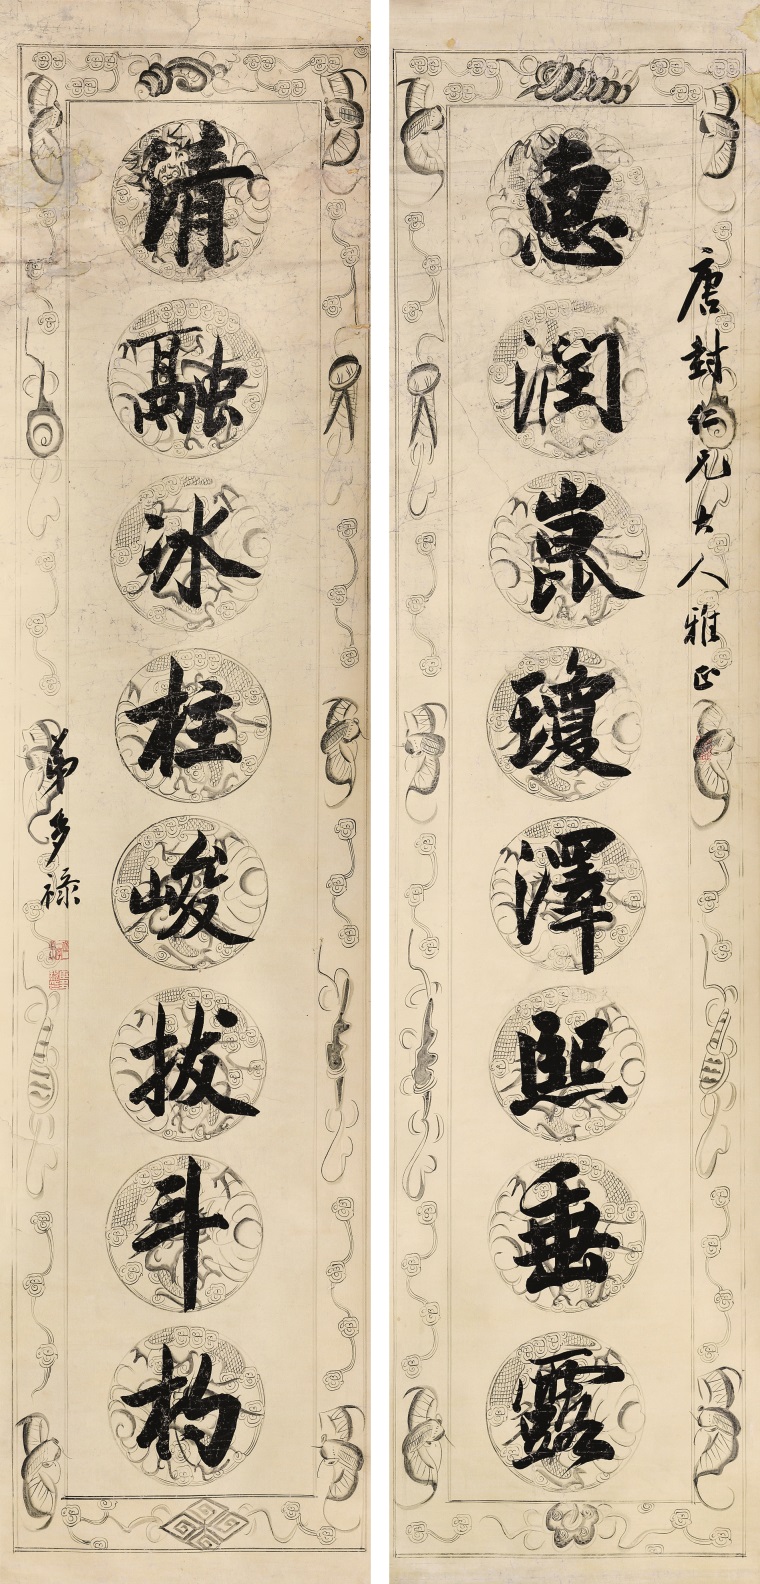 唐封仁兄大人雅正
惠润崑瓊澤熙垂露
清融冰柱峻拔斗杓
弟多祿